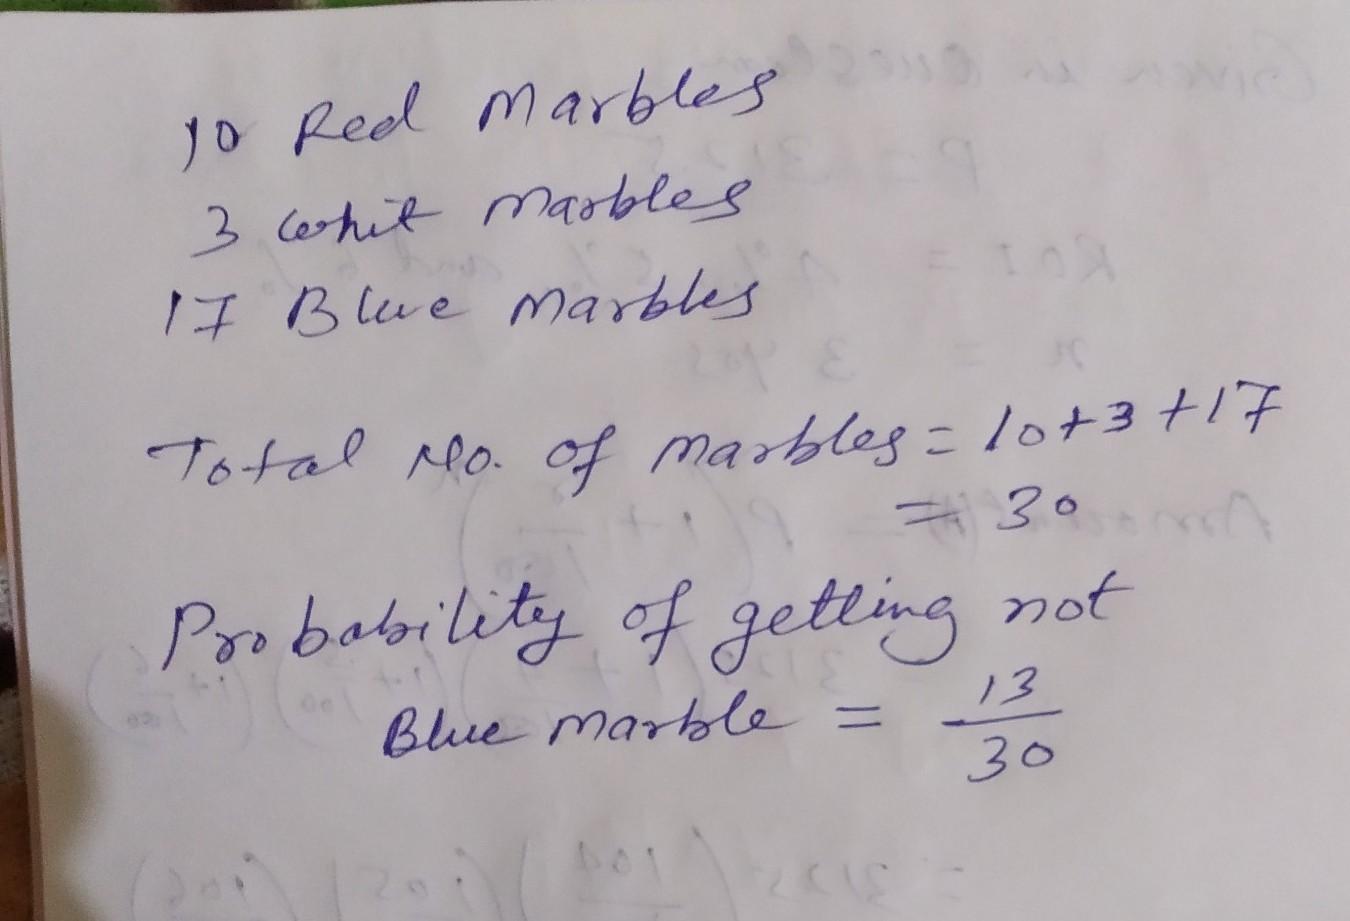 10 Red Marbles
3 Whit Marbles
17 Blue Marbles
Total No. of Marbles = 10+3+17
= 30
Probability of getting not
Blue Marble = 13/30